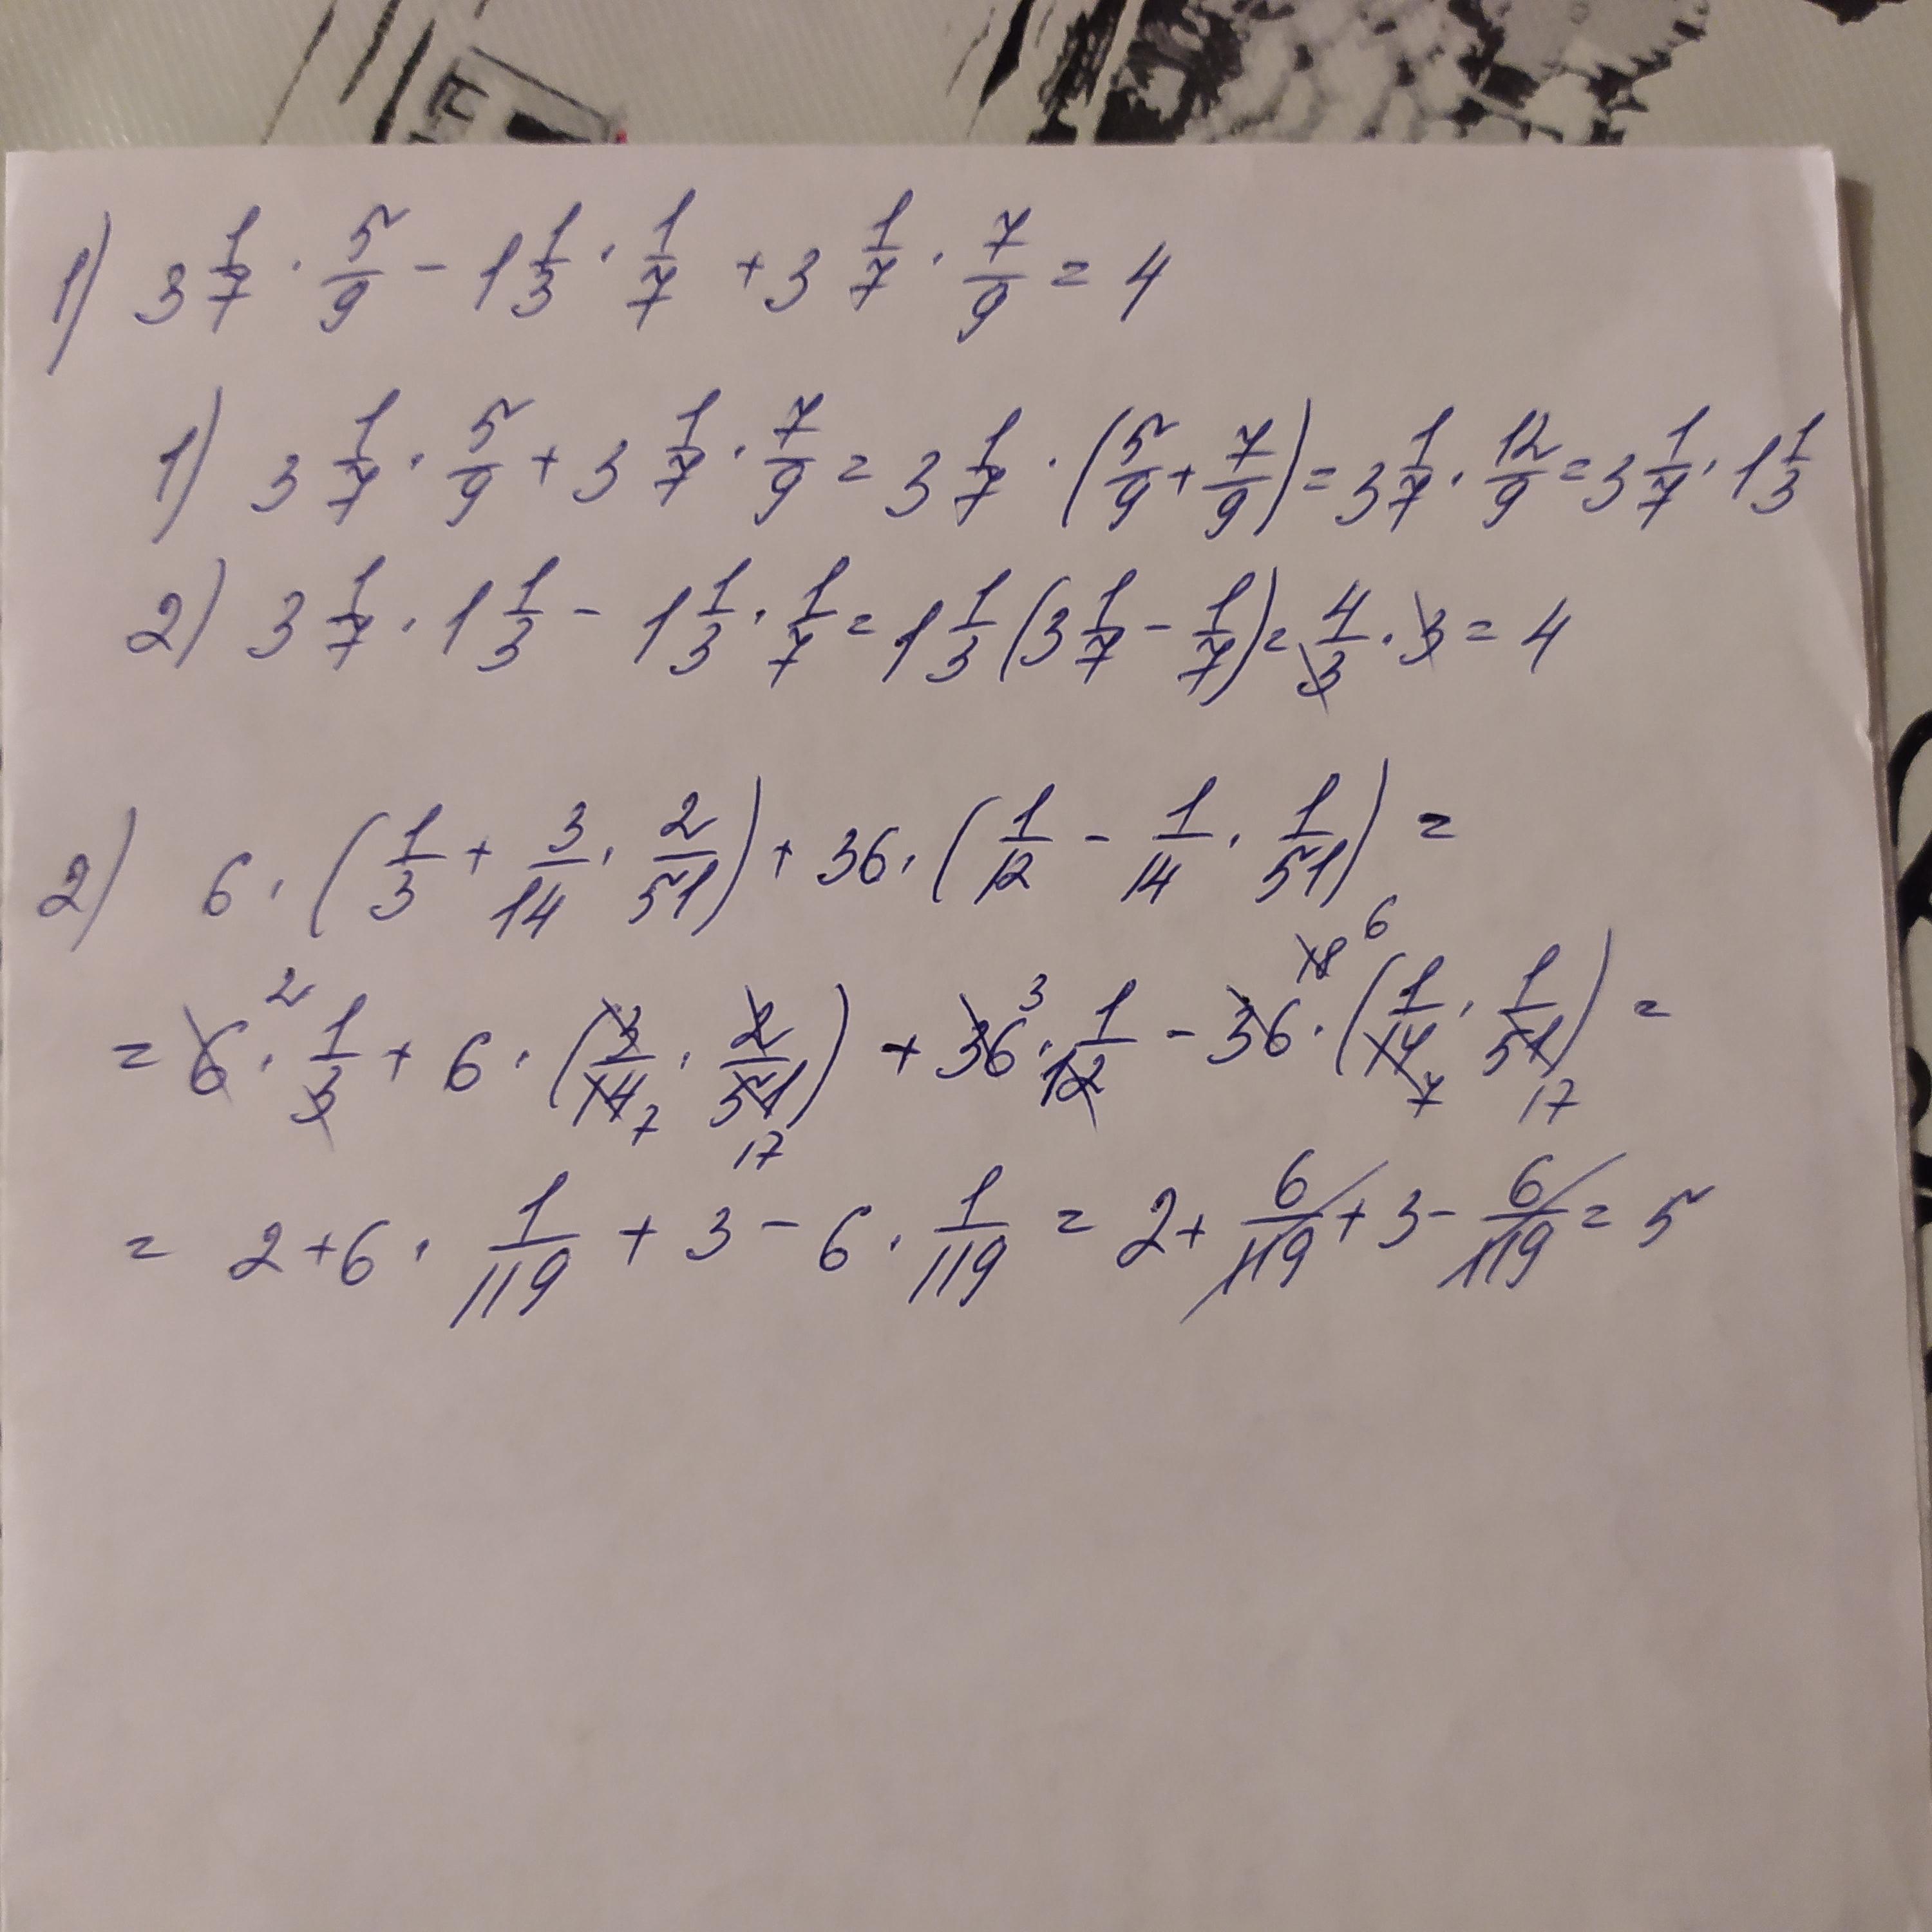 1) 3 1/7 · 5/9 - 1 1/3 · 1/7 + 3 1/7 · 7/9 = 4
1) 3 1/7 · 5/9 + 3 1/7 · 7/9 = 3 1/7 · (5/9 + 7/9) = 3 1/7 · 12/9 = 3 1/7 · 1 1/3
2) 3 1/7 · 1 1/3 - 1 1/3 · 1/7 = 1 1/3 (3 1/7 - 1/7) = 4/3 · 3 = 4
2) 6 · (1/3 + 3/14 · 2/51) + 36 · (1/12 - 1/14 · 1/51) =
= 6 2 · 1/3 + 6 · (3/14 7 · 2/51 17) + 36 3 · 1/12 - 36 18 6 · (1/14 7 · 1/51 17) =
= 2 + 6 · 1/119 + 3 - 6 · 1/119 = 2 + 6/119 + 3 - 6/119 = 5